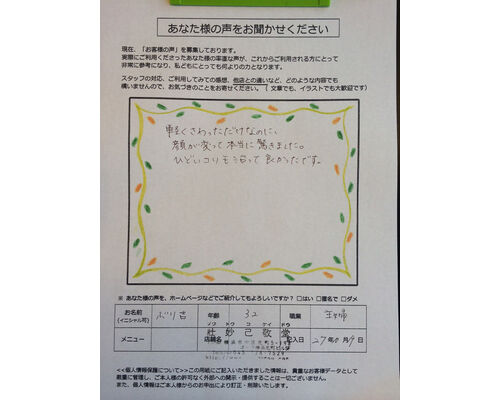 あなた様の声をお聞かせください
現在、「お客様の声」を募集しております。
実際にご利用くださったあなた様の率直な声が、これからご利用される方にとって
非常に参考になり、私どもにとっても何よりの力となります。
スタッフの対応、ご利用してみての感想、他店との違いなど、どのような内容でも
構いませんので、お気づきのことをお寄せください。（ 文章でも、イラストでも大歓迎です）
軽くさわっただけなのに、
顔が変って本当に驚きました。
ひどいコリも治って良かったです。
※ あなた様の声を、ホームページなどでご紹介してもよろしいですか？ □はい □匿名で □ダメ
お名前 (イニシャル可) ぶり吉 年齢 32 職業 主婦
メニュー 店舗名 壮妙己敬堂 記入日 27年 月 日
<<個人情報保護について>>この用紙にご記入いただきました情報は、貴重なお客様データとして
厳重に管理し、ご本人様の許可なく外部への開示・提供することは一切ございません。
また、個人情報はご本人様からのお申出により訂正・削除いたします。